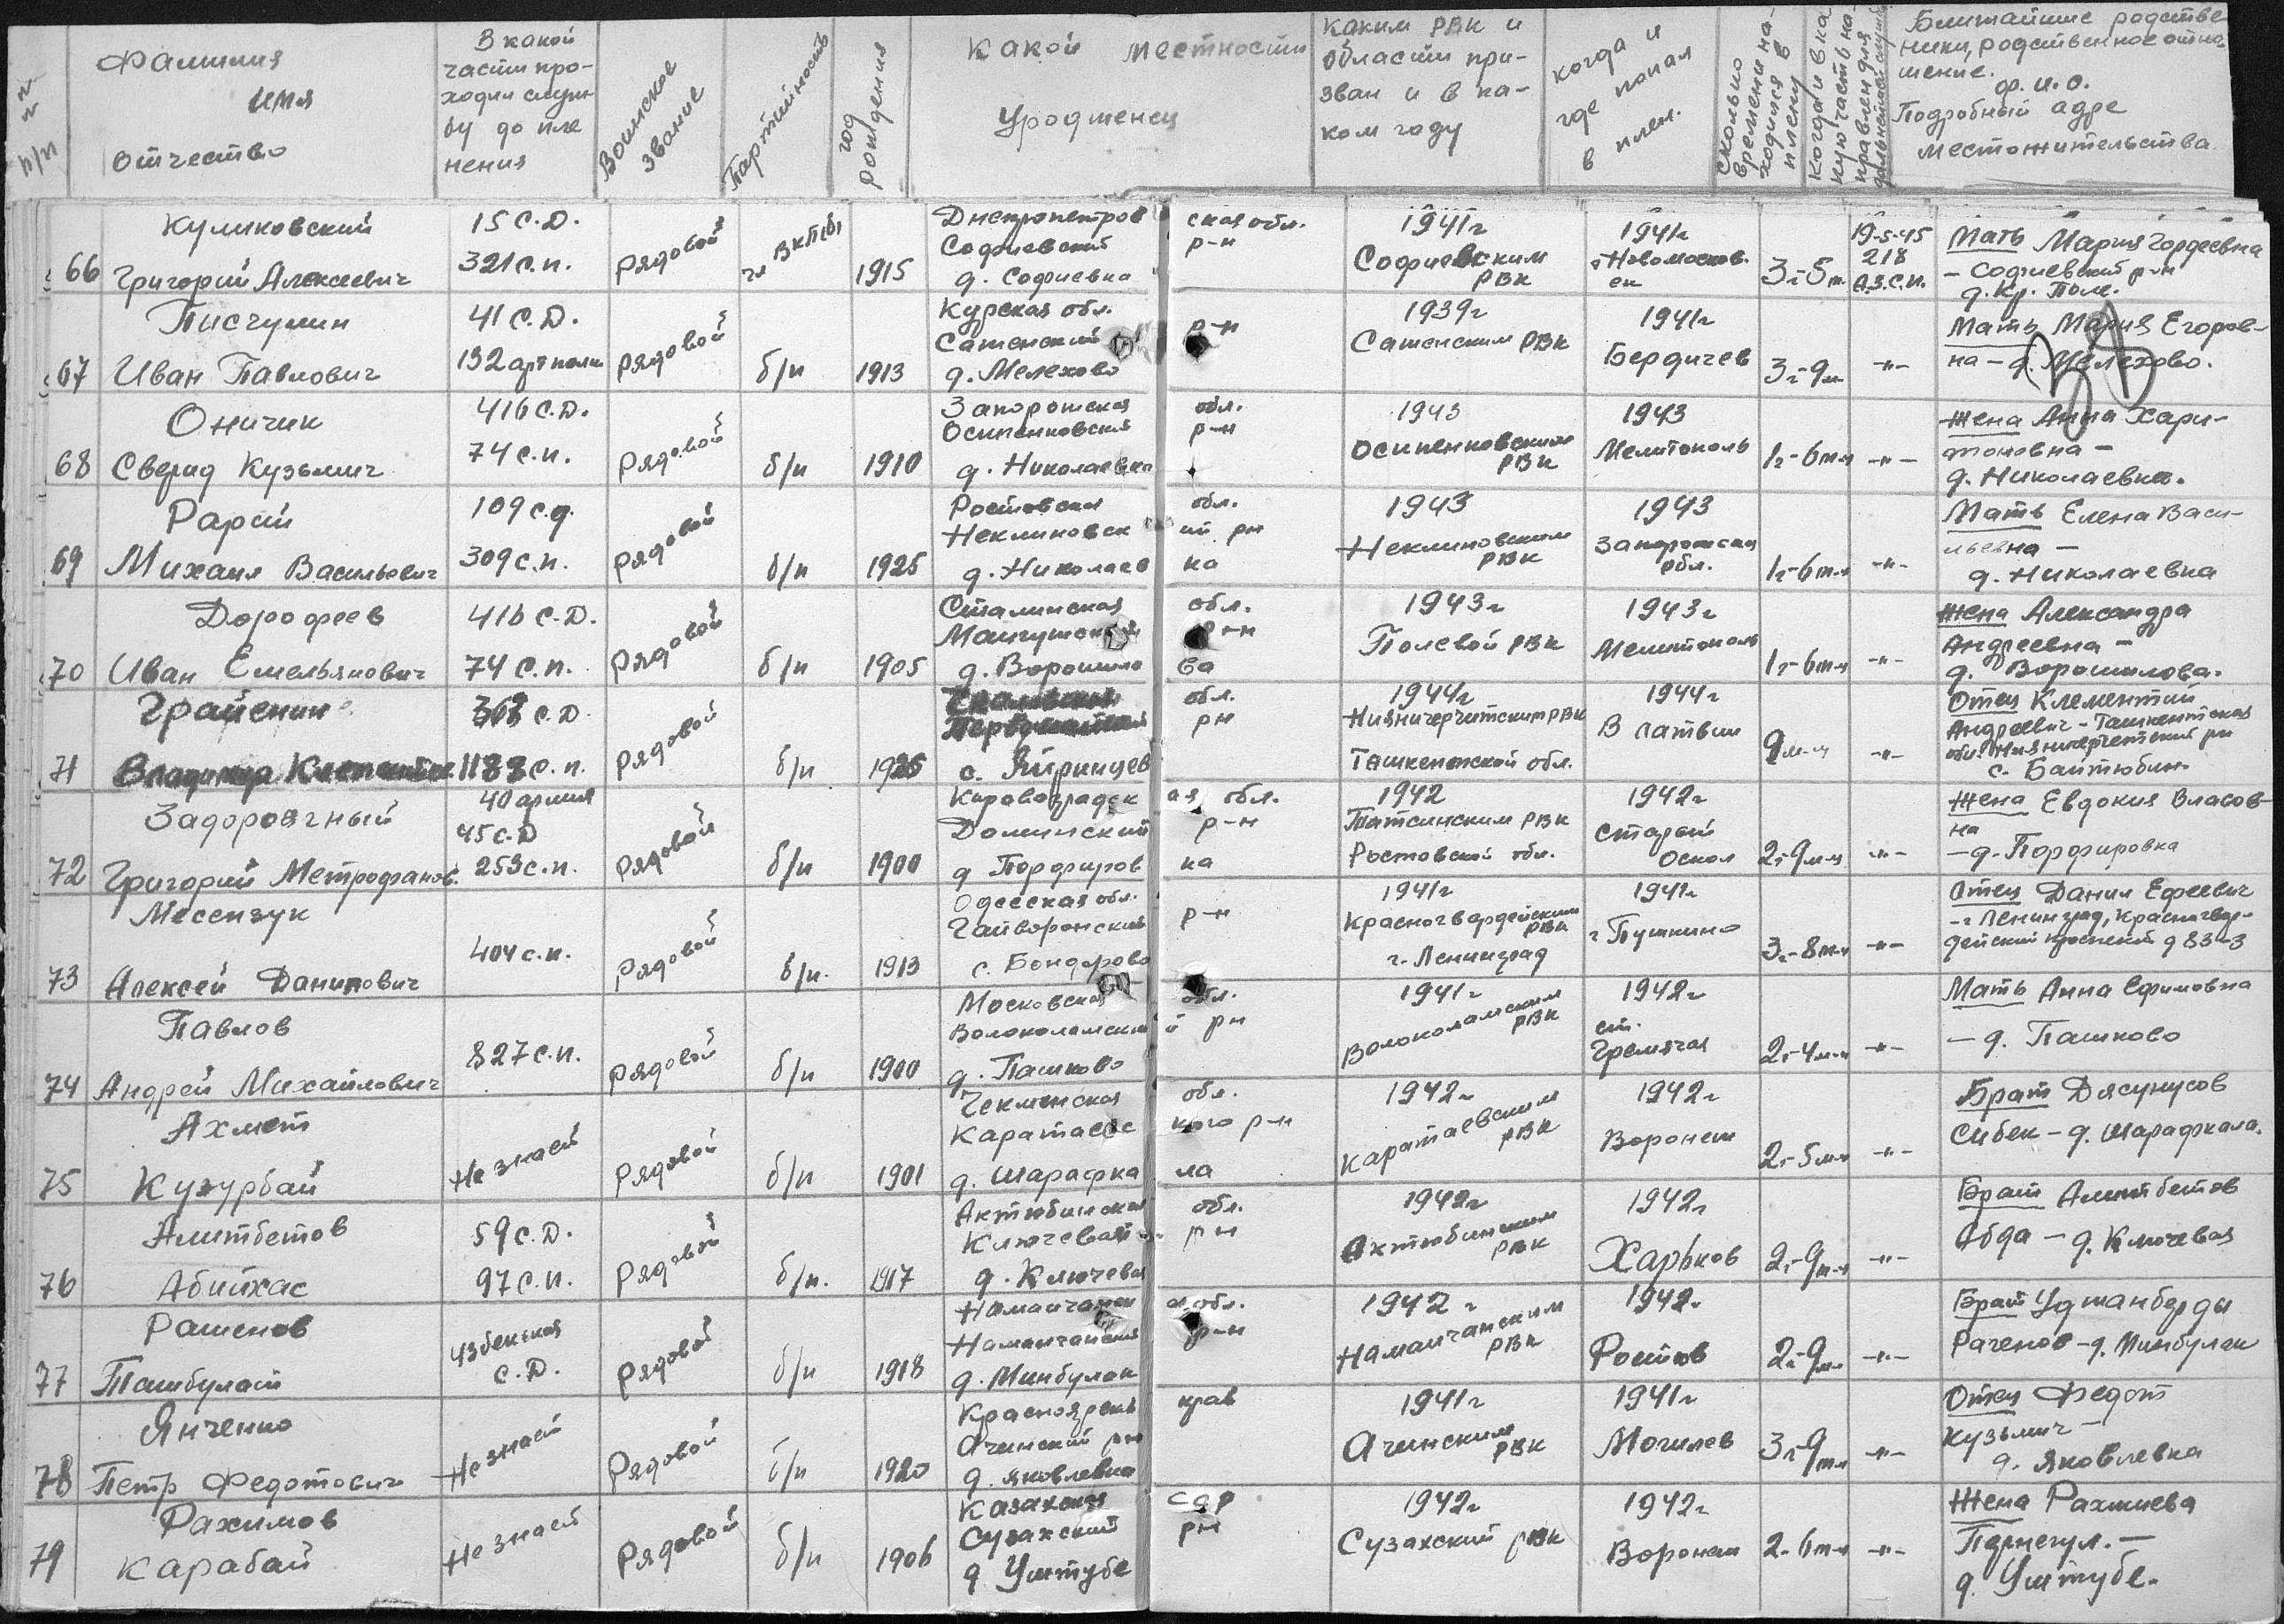 №№ п/п
Фамилия
имя
отчество
В какой
части про-
ходил служ
бу до пле
нения
Воинское
звание
Партийность
год
рождения
какой местности
Уроженец
каким РВК и
области при-
зван и в ка-
ком году
когда и
где попал
в плен.
сколько
времени на-
ходился в
плену
когда и в ка-
кую часть на-
правлен для
дальнейшей службы
Ближайшие родстве
ники, родственное отно-
шение.
ф. и. о.
Подробный адре
местожительства.
66
Куликовский
Григорий Алексеевич
15 с.д.
321 с.п.
рядовой
чл ВКП(б)
1915
Днепропетров ская обл.
Софиевский р-н
д. Софиевка
1941г
Софиевским
РВК
1941г
г Новомосков-
ск
3г-5м
19-5-45
218
а.з.с.п.
Мать Мария Гордеевна
- Софиевский р-н
д. Кр. Поле.
67
Писчулин
Иван Павлович
41 с.д.
132 арт полк
рядовой
б/п
1913
Курская обл.
Саженский р-н
д. Мелехово
1939г
Саженским РВК
1941г
Бердичев
3г-9м
-"-
Мать Мария Егоров-
на - д. Мелехово.
68
Оничик
Сверид Кузьмич
416 с.д.
74 с.п.
рядовой
б/п
1910
Запорожская обл.
Осипенковский р-н
д. Николаевка
1943
Осипенковским
РВК
1943
Мелитополь
1г-6м-ц
-"-
Жена Анна Хари-
тоновна -
д. Николаевка.
69
Рарий
Михаил Васильевич
109 с.д.
309 с.п.
рядовой
б/п
1925
Ростовская обл.
Неклиновск ий рн
д. Николаев ка
1943
Неклиновским
РВК
1943
Запорожская
обл.
1г-6м-ц
-"-
Мать Елена Васи-
льевна -
д. Николаевка
70
Дорофеев
Иван Емельянович
416 с.д.
74 с.п.
рядовой
б/п
1905
Сталинская обл.
Мангушский р-н
д. Ворошило ва
1943г
Полевой РВК
1943г
Мелитополь
1г-6м-ц
-"-
Жена Александра
Андреевна -
д. Ворошилова.
71
Владимир
с.д.
1183 с.п.
рядовой
б/п
обл.
рн
1944г
РВК
Ташкентской обл.
1944г
В латвии
9м-ц
-"-
Отец Клементий
Андреевич - Ташкентская
с. Байтюбин
72
Задорожный
Григорий Метрофанов.
40 армия
45 с.д
253 с.п.
рядовой
б/п
1900
Кировоградск ая обл.
Долинский р-н
д Порфиров ка
1942
Татсинским РВК
Ростовской обл.
1942г
Старый
Оскол
2г-9м-ц
-"-
Жена Евдокия Власов-
на
- д. Порфировка
73
Месензук
Алексей Данилович
404 с.п.
рядовой
б/п.
1913
Одесская обл.
Гайворонский р-н
с. Бондорово
1941г
Красногвардейским
РВК
г. Ленинград
1941г
г Пушкино
3г-8м-ц
-"-
Отец Данил Ефеевич
- г Ленинград, Красногвар-
дейский проспект д 83-3
74
Павлов
Андрей Михайлович
827 с.п.
рядовой
б/п
1900
Московская обл.
Волоколамский рн
д. Пашково
1941г
Волоколамским
РВК
1942г
ст.
Гремячая
2г-4м-ц
-"-
Мать Анна Ефимовна
- д. Пашково
75
Ахмет
Кузурбай
Не знает
рядовой
б/п
1901
Чекменская обл.
Каратаевс кого р-н
д. Шарафка ла
1942г
Каратаевским
РВК
1942г
Воронеж
2г-5м-ц
-"-
Брат Дясунусов
Сибек - д. Шарафкала.
76
Алитбетов
Абийхас
59 с.д.
97 с.п.
рядовой
б/п.
1917
Актюбинская обл.
Ключевой рн
д. Ключевая
1942г
Актюбинским
РВК
1942г
Харьков
2г-9м-ц
-"-
Брат Алитбетов
Абда - д. Ключевая
77
Раженов
Ташбулат
Узбекская
с.д.
рядовой
б/п
1918
Наманган обл.
Наманганский р-н
д. Минбулак
1942г
Наманганским
РВК
1942г
Ростов
2г-9м-ц
-"-
Брат Уджанберды
Раченов - д. Минбулак
78
Янченко
Петр Федотович
Не знает
Рядовой
б/п
1920
Красноярский край
Ачинский рн
д. Яковлевка
1941г
Ачинским
РВК
1941г
Могилев
3г-9м-ц
-"-
Отец Федот
Кузьмич -
д. Яковлевка
79
Рахимов
Карабай
Не знает
Рядовой
б/п
1906
Казахская ССР
Сузакский рн
д Уштубе
1942г
Сузахский РВК
1942г
Воронеж
2-6м-ц
-"-
Жена Рахмиева
Пернегул. -
д. Уштубе.